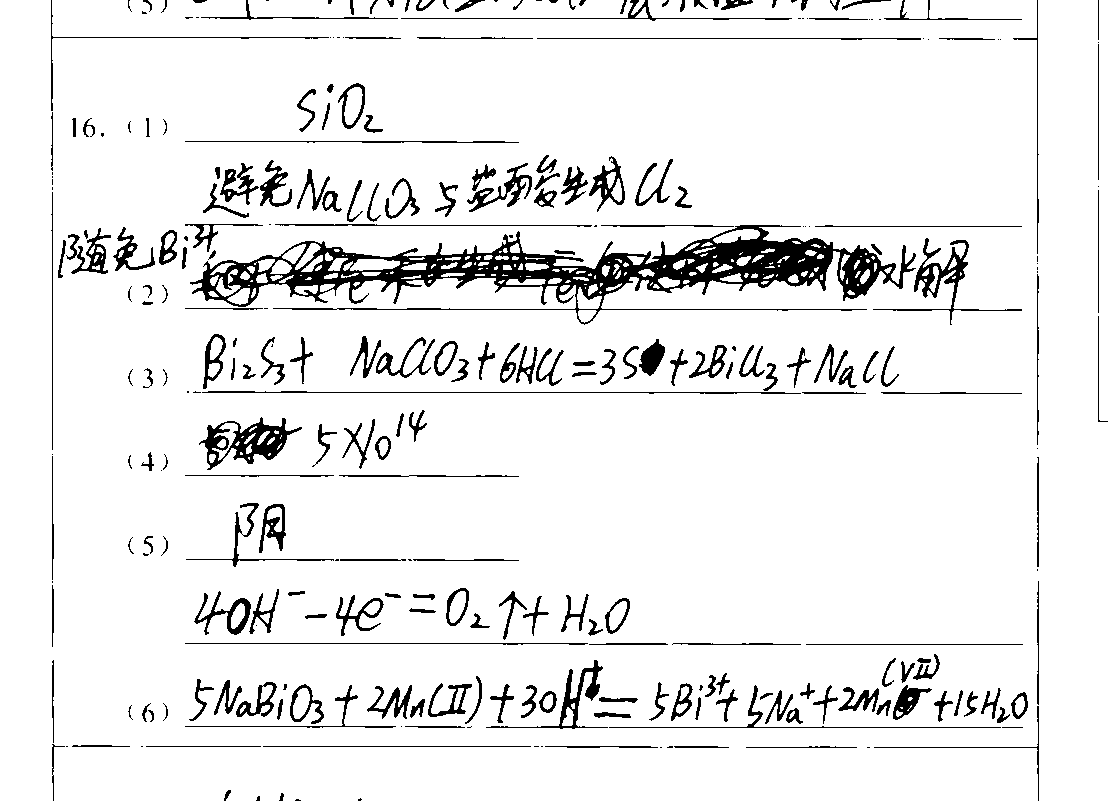 16.（1） SiO₂
避免NaClO₃与盐酸发生成Cl₂
随免Bi³⁺
（2） 水解
（3） Bi₂S₃+ NaClO₃+6HCl=3S+2BiCl₃+NaCl
（4） 5×10¹⁴
（5） 阴
4OH⁻-4e⁻=O₂↑+H₂O
（6） 5NaBiO₃+2Mn(Ⅱ)+30H⁺=5Bi³⁺+5Na⁺+2Mn(Ⅶ)+15H₂O